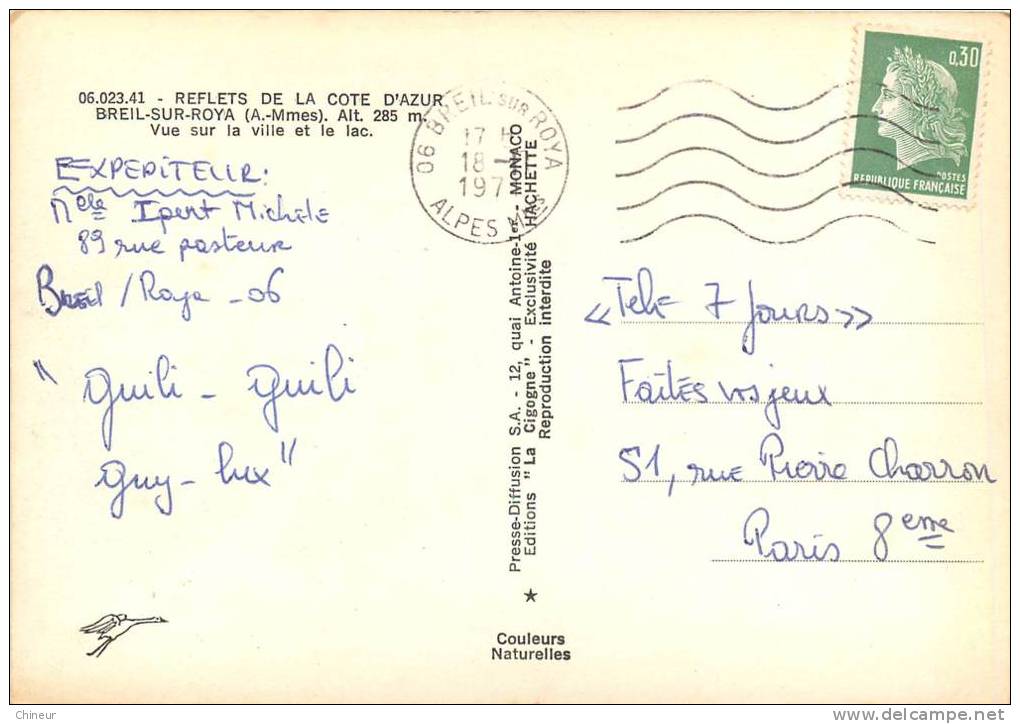 06.023.41 - REFLETS DE LA COTE D'AZUR
BREIL-SUR-ROYA (A.-Mmes). Alt. 285 m.
Vue sur la ville et le lac.
EXPEDITEUR:
Melle Ipert Michèle
89 rue pasteur
Breil / Roya - 06
" guili - guili
guy - lux "
06 BREIL SUR ROYA
17 H
18 -
197
ALPES Mmes
0,30
POSTES
REPUBLIQUE FRANÇAISE
Presse-Diffusion S.A. - 12, quai Antoine-1er - MONACO
Editions " La Cigogne" - Exclusivité HACHETTE
Reproduction interdite
« Télé 7 Jours »
Faites vos jeux
51, rue Pierre Charron
Paris 8eme
★
Couleurs
Naturelles
Chineur
delcampe.net